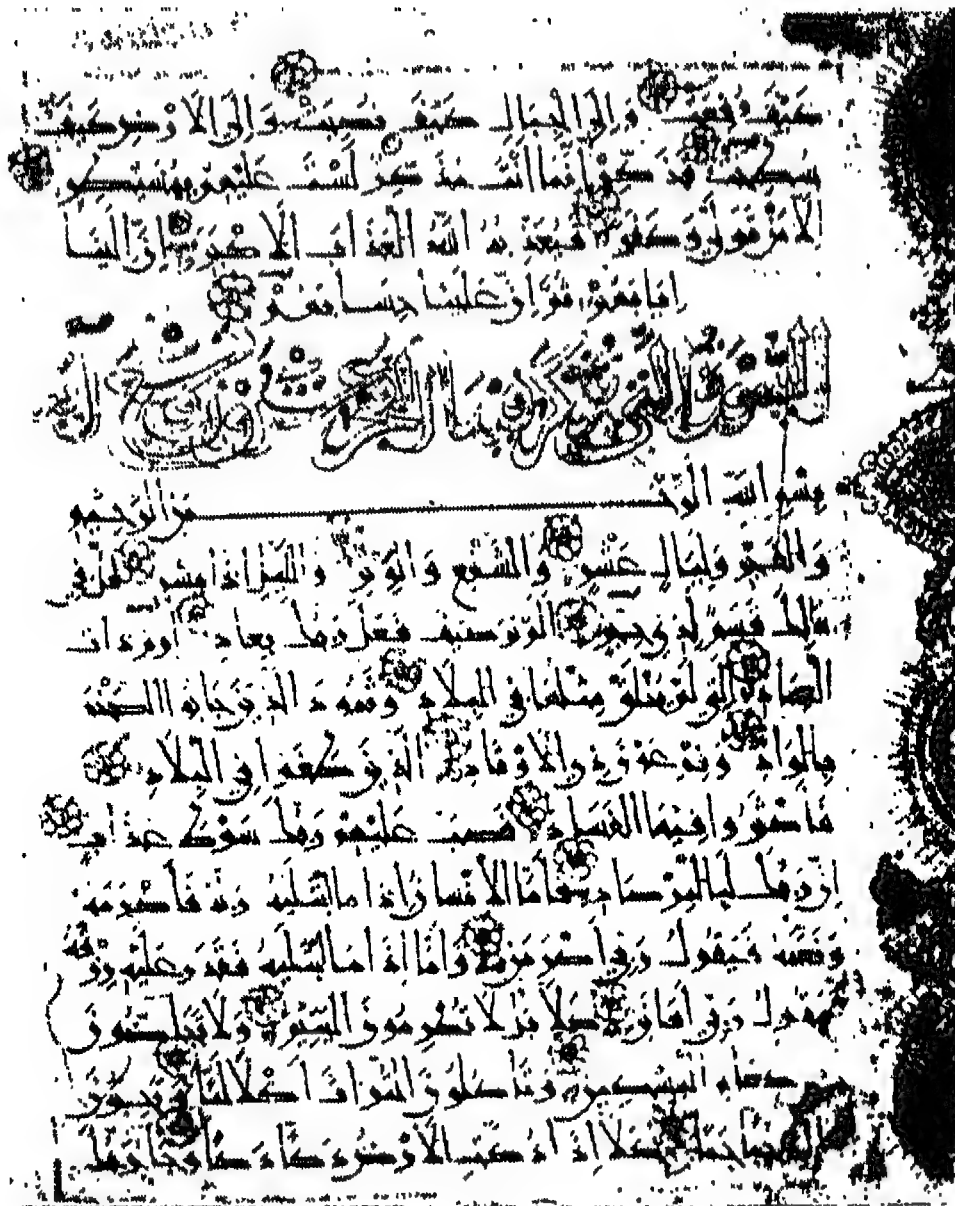 كيف رفعت وإلى الجبال كيف نصبت وإلى الأرض كيف
سطحت فذكر إنما أنت مذكر لست عليهم بمصيطر
إلا من تولى وكفر فيعذبه الله العذاب الأكبر إن إلينا
إيابهم ثم إن علينا حسابهم
السورة التي يذكر فيها الفجر
بسم الله الرحمن الرحيم
والفجر وليال عشر والشفع والوتر والليل إذا يسر هل في
ذلك قسم لذي حجر ألم تر كيف فعل ربك بعاد إرم ذات
العماد التي لم يخلق مثلها في البلاد وثمود الذين جابوا الصخر
بالواد وفرعون ذي الأوتاد الذين طغوا في البلاد
فأكثروا فيها الفساد فصب عليهم ربك سوط عذاب
إن ربك لبالمرصاد فأما الإنسان إذا ما ابتليه ربه فأكرمه
ونعمه فيقول ربي أكرمن وأما إذا ما ابتليه فقدر عليه رزقه
فيقول ربي أهانن كلا بل لا تكرمون اليتيم ولا تحاضون
على طعام المسكين وتأكلون التراث أكلا لما وتحبون
المال حبا جما كلا إذا دكت الأرض دكا دكا وجاء ربك